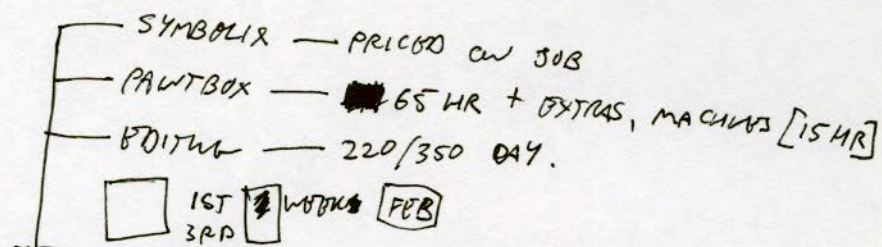 SYMBOLIX — PRICED ON JOB
PAINTBOX — 65 HR + EXTRAS, MACHINES [15 HR]
EDITING — 220/350 DAY.
1ST WEEKS FEB
3RD